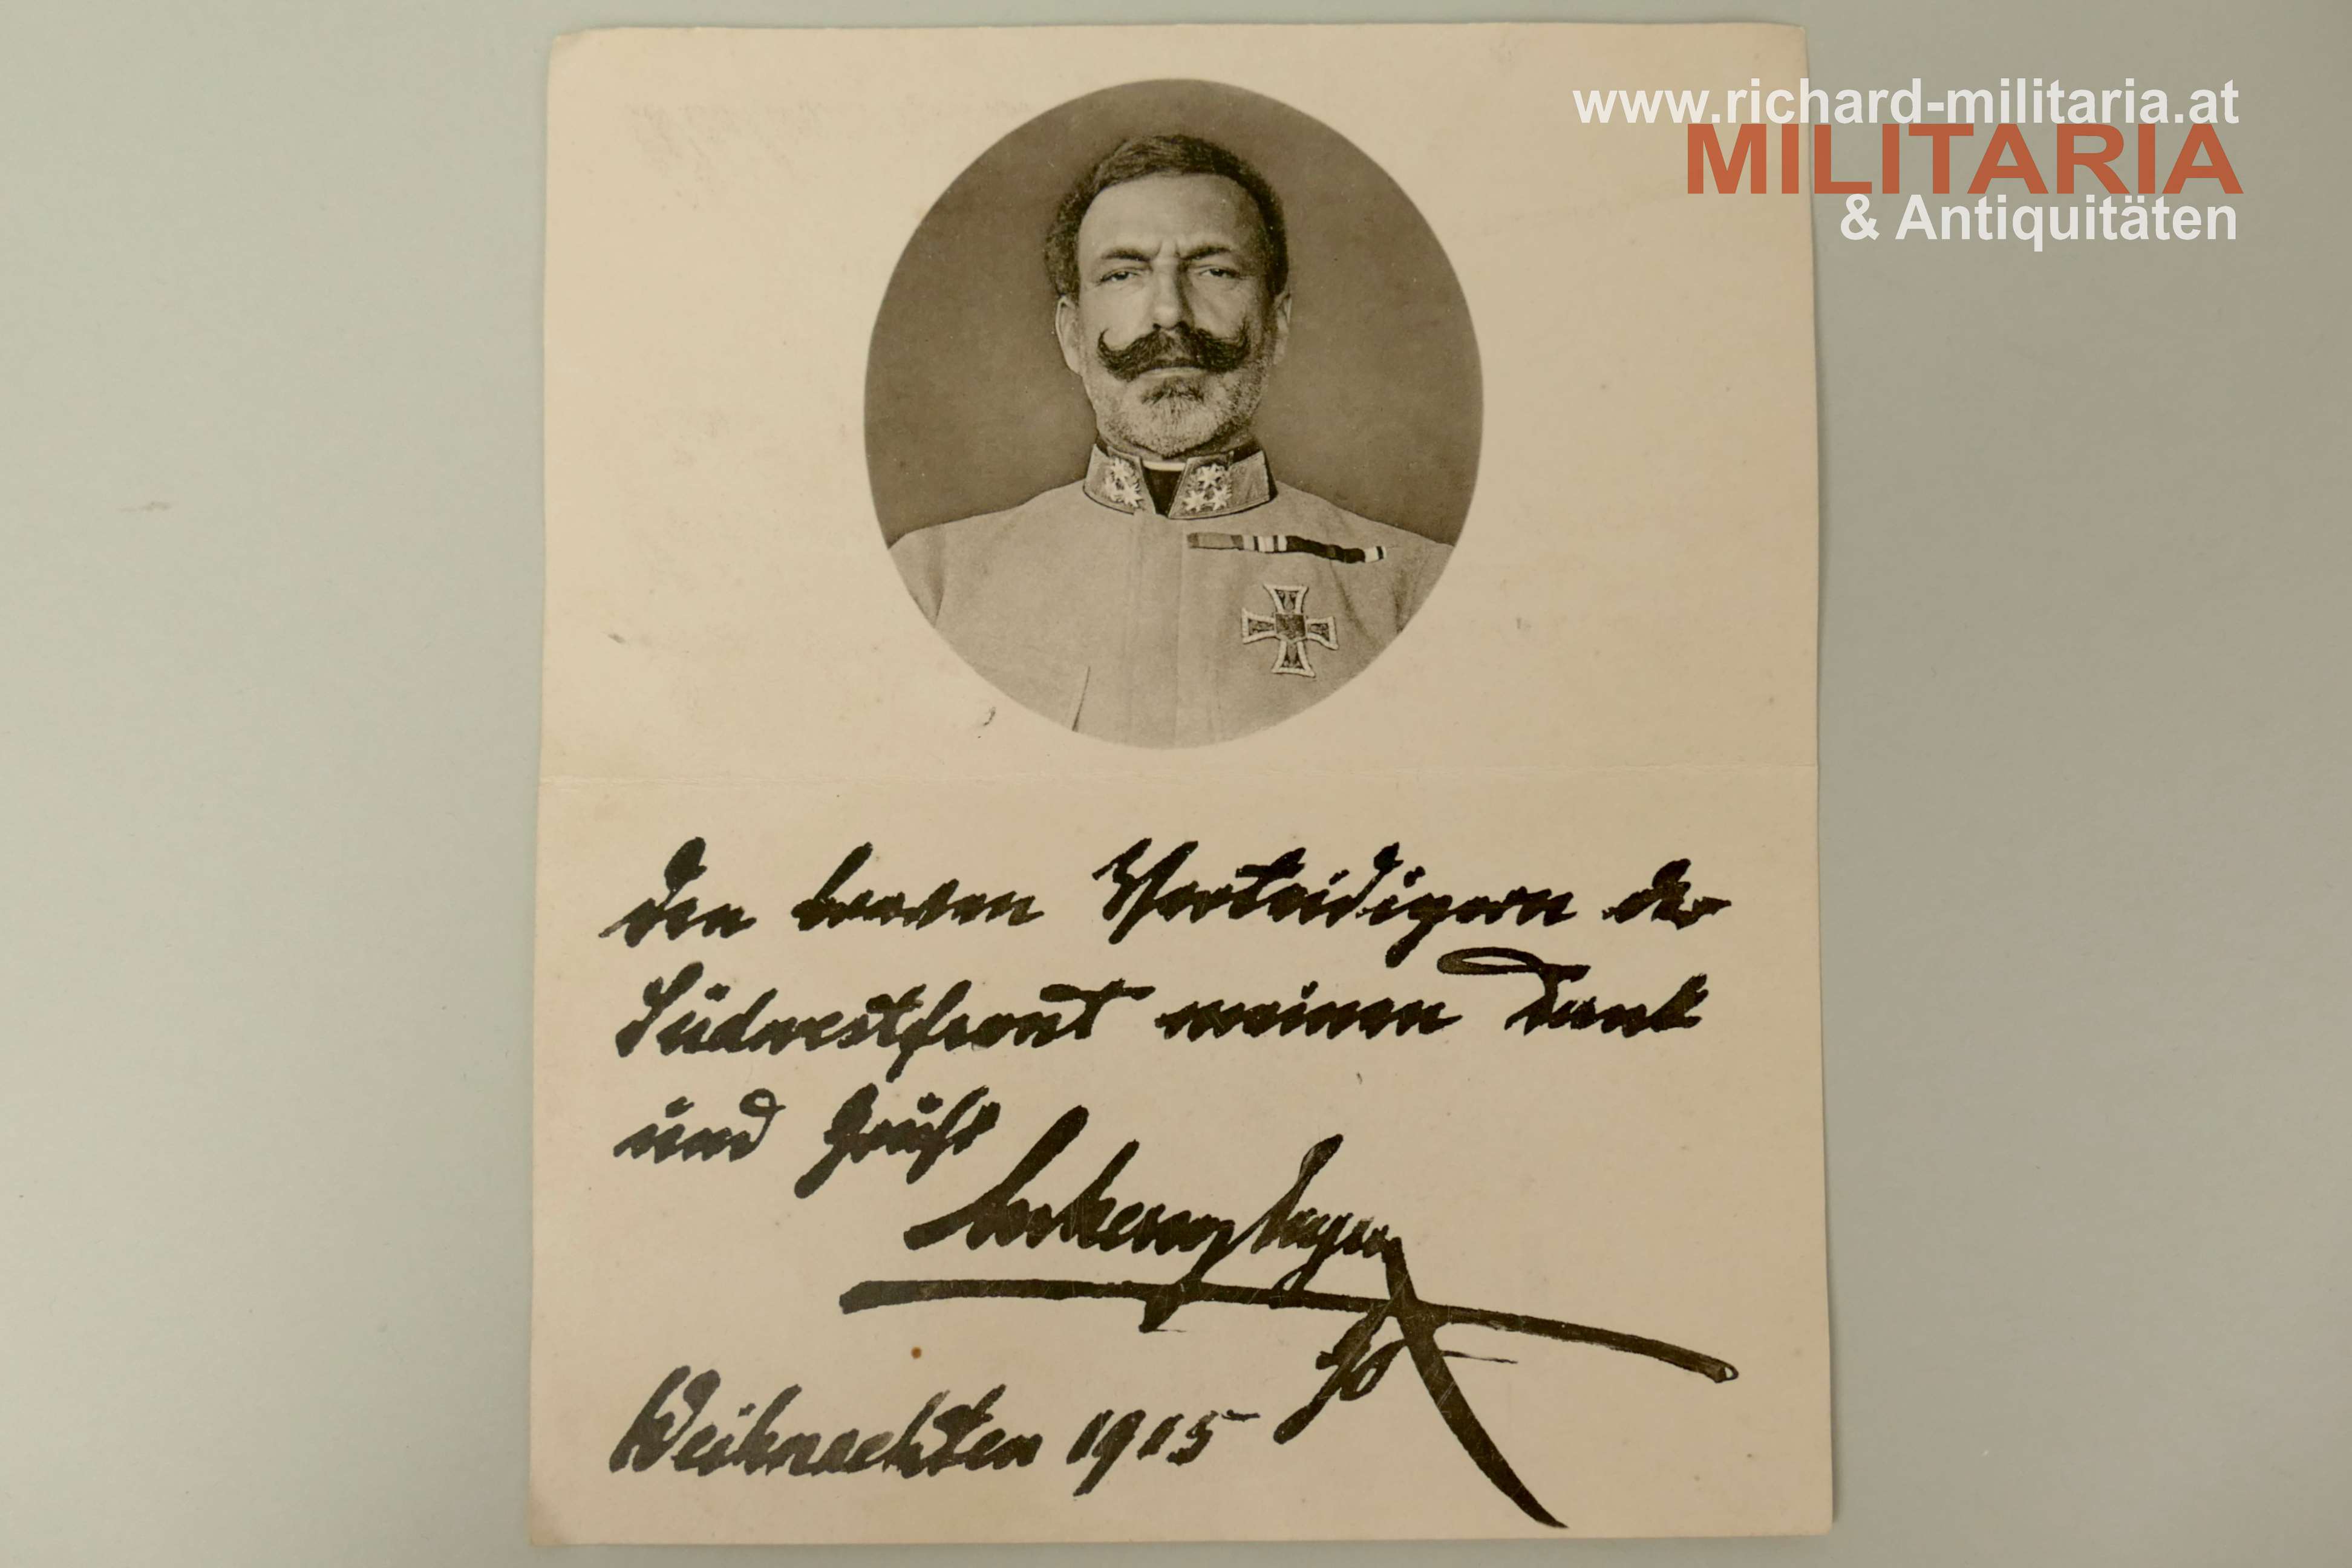 www.richard-militaria.at
MILITARIA
& Antiquitäten
Den braven Verteidigern der
Südwestfront meinen Dank
und Gruß
Weihnachten 1915